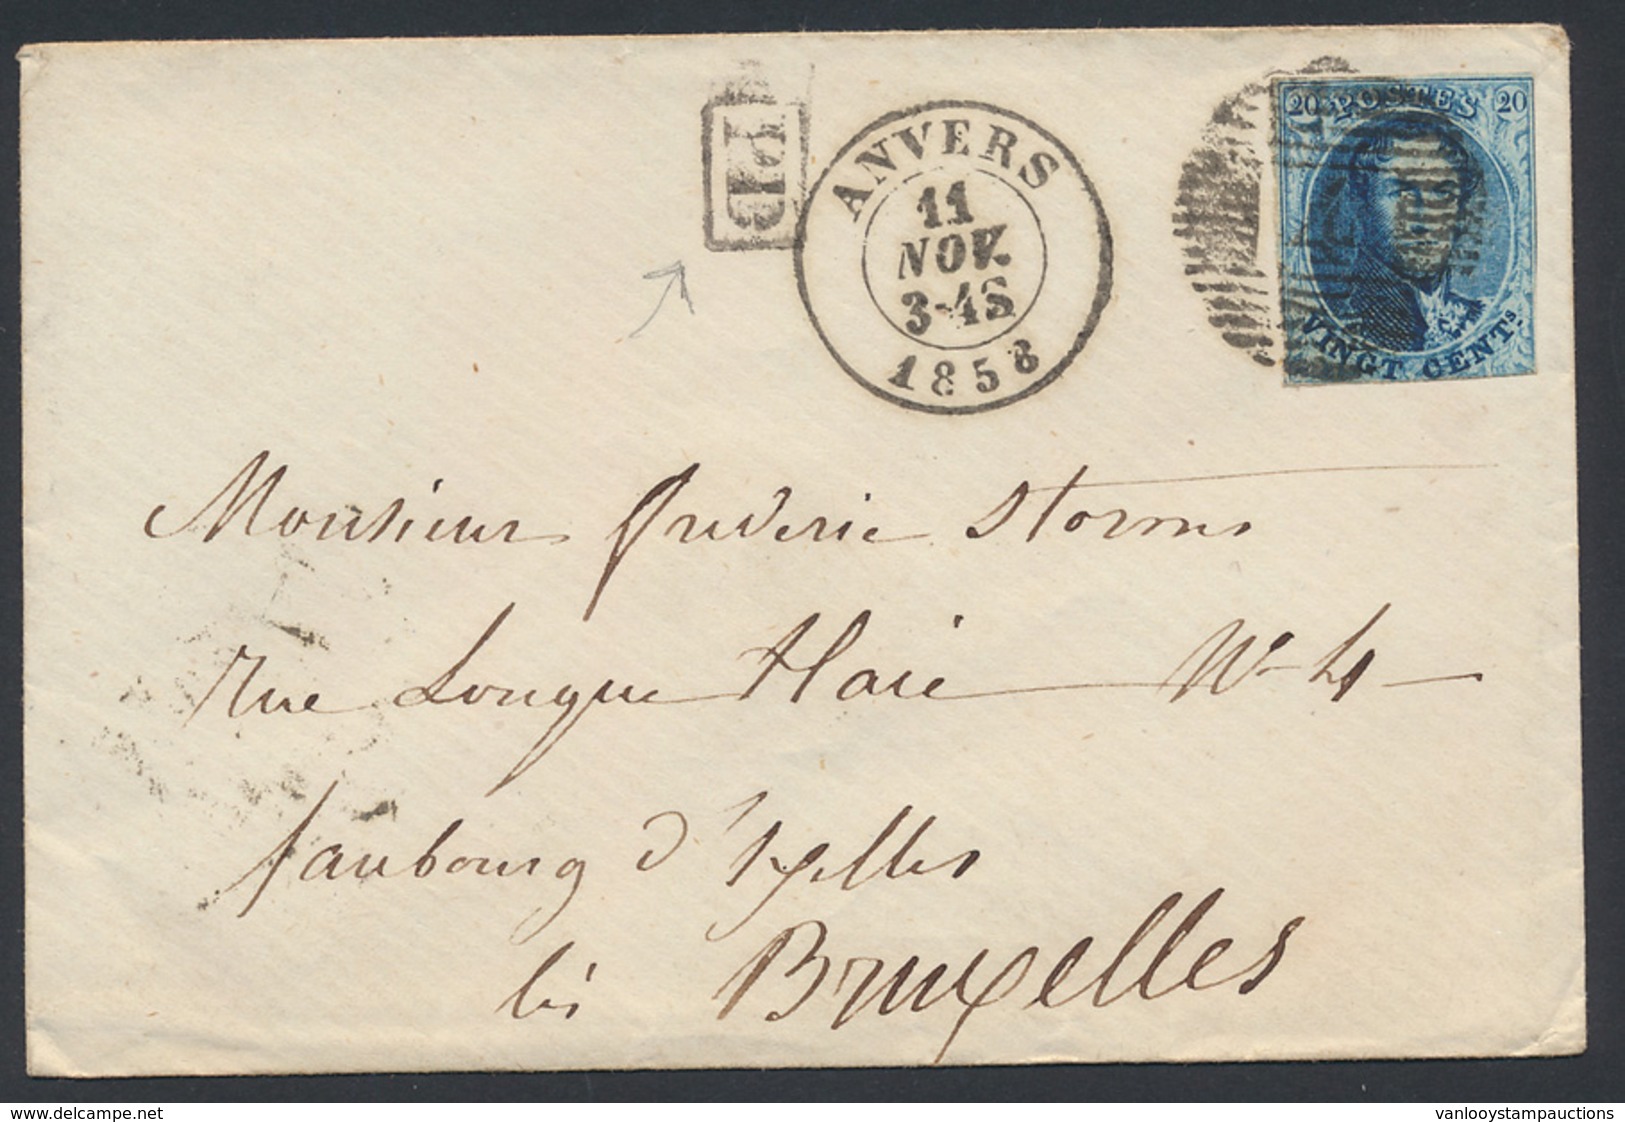 PD
ANVERS
11
NOV.
3-4S
1858
20 POSTES 20
VINGT CENTS.
Monsieur Frederic Storms
rue Longue Haie No 4
faubourg d'Ixelles
lès Bruxelles
www.delcampe.net
vanlooystampauctions